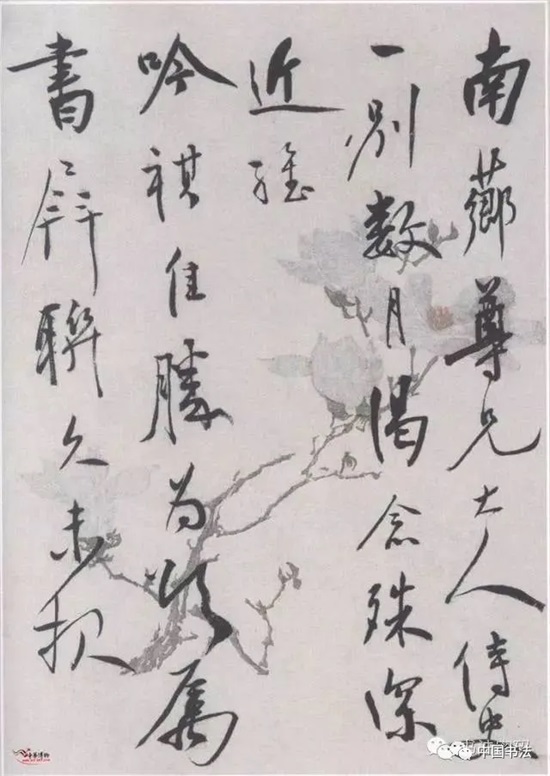 南薌尊兄大人侍史
一别數月渴念殊深
近維
吟祺佳勝为頌属
書屏聯久未报
中国书法